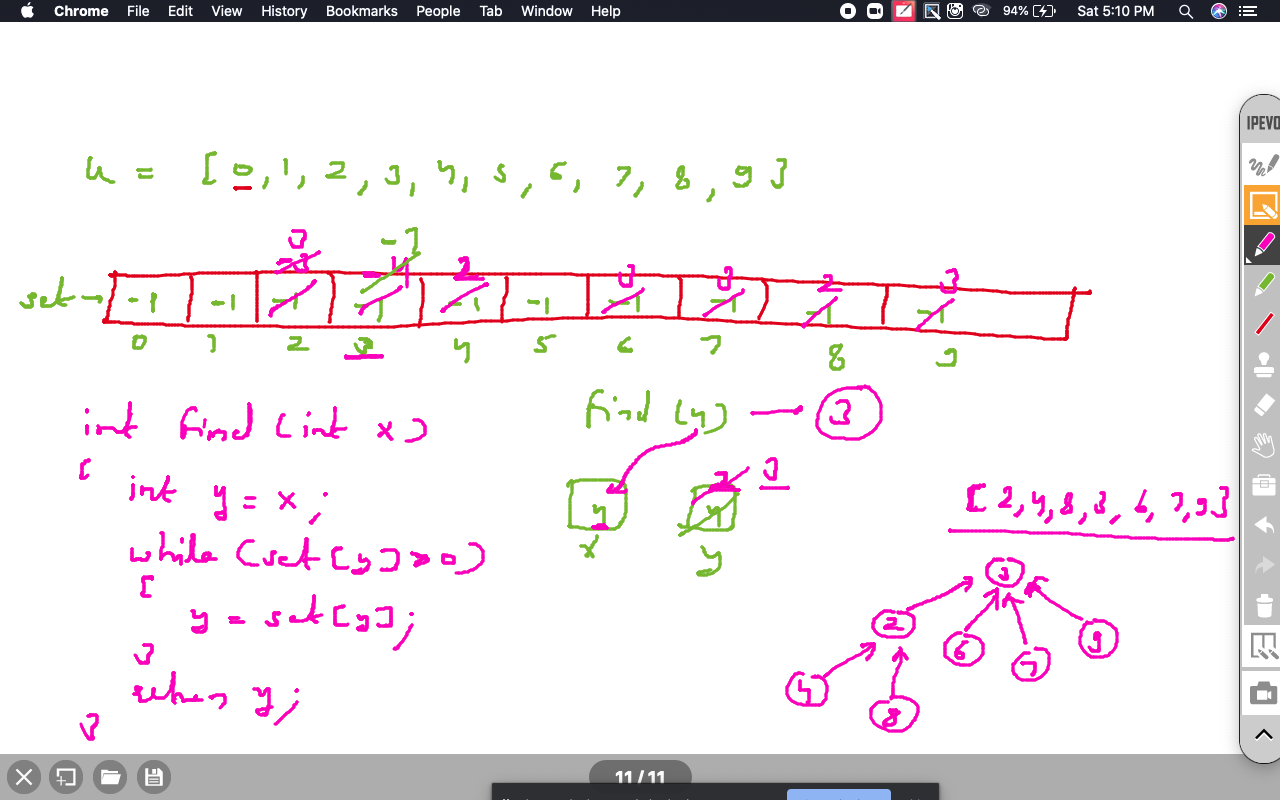 Chrome File Edit View History Bookmarks People Tab Window Help 94% Sat 5:10 PM
IPEVO
u = [0, 1, 2, 3, 4, 5, 6, 7, 8, 9]
3 -7
-3 -4 2 3 3 2 3
set → -1 -1 -1 -1 -1 -1 -1 -1 -1 -1
0 1 2 3 4 5 6 7 8 9
find (4) — 3
int find (int x)
{
int y = x;
while (set[y] > 0)
{
y = set[y];
}
return y;
}
2 3
4 4
x y
[2, 4, 8, 3, 6, 7, 9]
3
2 6 7 9
4 8
11 / 11